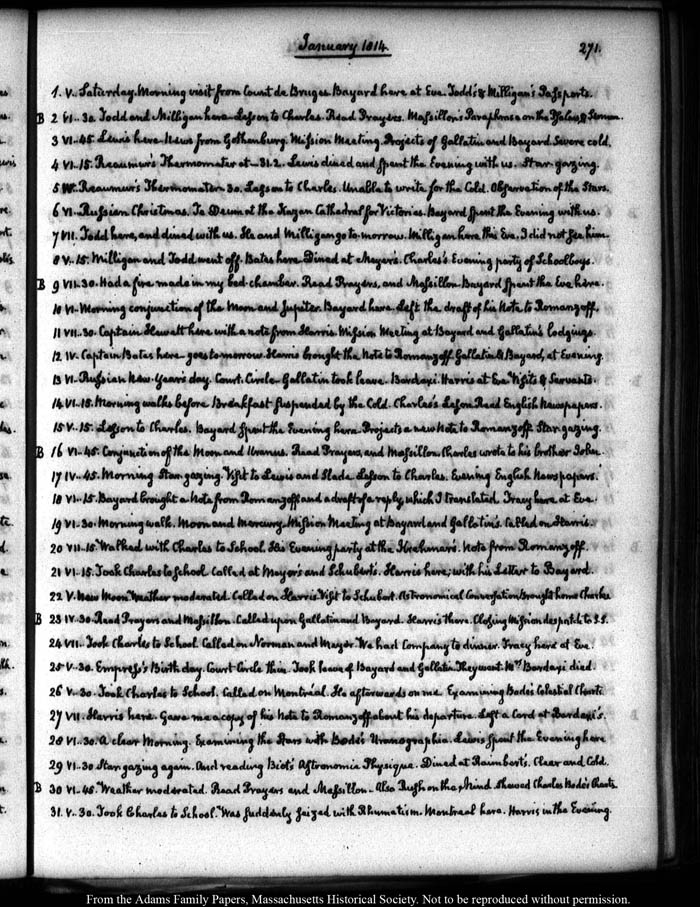 January 1814.
271.
1. V. Saturday. Morning visit from Count de Bruges. Bayard here at Eve. Todd's & Milligan's Passports.
B 2 VI. 30. Todd and Milligan here. Lesson to Charles. Read Prayers. Massillon's Paraphrase on the Psalms, & Sermon.
3 VI. 45. Lewis here. News from Gothenburg. Mission Meeting. Projects of Gallatin and Bayard. Severe cold.
4 VI. 15. Reaumur's Thermometer at -31.2. Lewis dined and spent the Evening with us. Star-gazing.
5 Reaumur's Thermometer 30. Lesson to Charles. Unable to write for the Cold. Observation of the Stars.
6 VI. Russian Christmas. Te Deum at the Kazan Cathedral for Victories. Bayard spent the Evening with us.
7 VII. Todd here, and dined with us. He and Milligan go to-morrow. Milligan here this Eve. I did not see him.
8 V. 15. Milligan and Todd went off. Bates here. Dined at Meyer's. Charles's Evening party of Schoolboys.
B 9 VII. 30. Had a fire made in my bed-chamber. Read Prayers, and Massillon. Bayard spent the Eve here.
10 VI. Morning conjunction of the Moon and Jupiter. Bayard here. Left the draft of his Note to Romanzoff.
11 VII. 30. Captain here with a note from Harris. Mission Meeting at Bayard and Gallatin's lodgings.
12 IV. Captain Bates here. goes to morrow. Harris brought the Note to Romanzoff. Gallatin & Bayard, at Evening.
13 VI. Russian New-Year's day. Court. Circle. Gallatin took leave. Bardaxi. Harris at Eve. Visits & Servants.
14 VI. 15. Morning walks before Breakfast suspended by the Cold. Charles's Lesson. Read English Newspapers.
15 V. 15. Lesson to Charles. Bayard spent the Evening here. Projects a new Note to Romanzoff. Star-gazing.
B 16 VI. 45. Conjunction of the Moon and Uranus. Read Prayers, and Massillon. Charles wrote to his brother John.
17 IV. 45. Morning Star-gazing. Visit to Lewis and Slade. Lesson to Charles. Evening English Newspapers.
18 VI. 15. Bayard brought a Note from Romanzoff and a draft of a reply, which I translated. Tracy here at Eve.
19 VI. 30. Morning walk. Moon and Mercury. Mission Meeting at Bayard and Gallatin's. Called on Harris.
20 VII. 15. Walked with Charles to School. His Evening party at the Krehmer's. Note from Romanzoff.
21 VI. 15. Took Charles to School. Called at Meyer's and Schubert's. Harris here; with his Letter to Bayard.
22 V. New Moon. Weather moderated. Called on Harris. Visit to Schubert. Astronomical Conversation. Brought home Charles
B 23 IV. 30. Read Prayers and Massillon. Called upon Gallatin and Bayard. Harris there. Closing Mission despatch to S.S.
24 VII. Took Charles to School. Called on Norman and Meyer. We had Company to dinner. Tracy here at Eve.
25 V. 30. Empress's Birth day. Court Circle thin. Took leave of Bayard and Gallatin. They went. Mrs. Bardaxi died.
26 V. 30. Took Charles to School. Called on Montréal. He afterwards on me. Examining Bode's Celestial Charts.
27 VII. Harris here. Gave me a copy of his Note to Romanzoff about his departure. Left a Card at Bardaxi's.
28 VI. 30. A clear Morning. Examining the Stars with Bode's Uranographia. Lewis spent the Evening here
29 VI. 30 Star gazing again. And reading Biot's Astronomie Physique. Dined at Raimbert's. Clear and Cold.
B 30 VI. 45. Weather moderated. Read Prayers and Massillon. Also Rush on the Mind. Shewed Charles Bode's Charts
31. V. 30. Took Charles to School. Was suddenly seized with Rhumatism. Montreal here. Harris in the Evening.
From the Adams Family Papers, Massachusetts Historical Society. Not to be reproduced without permission.